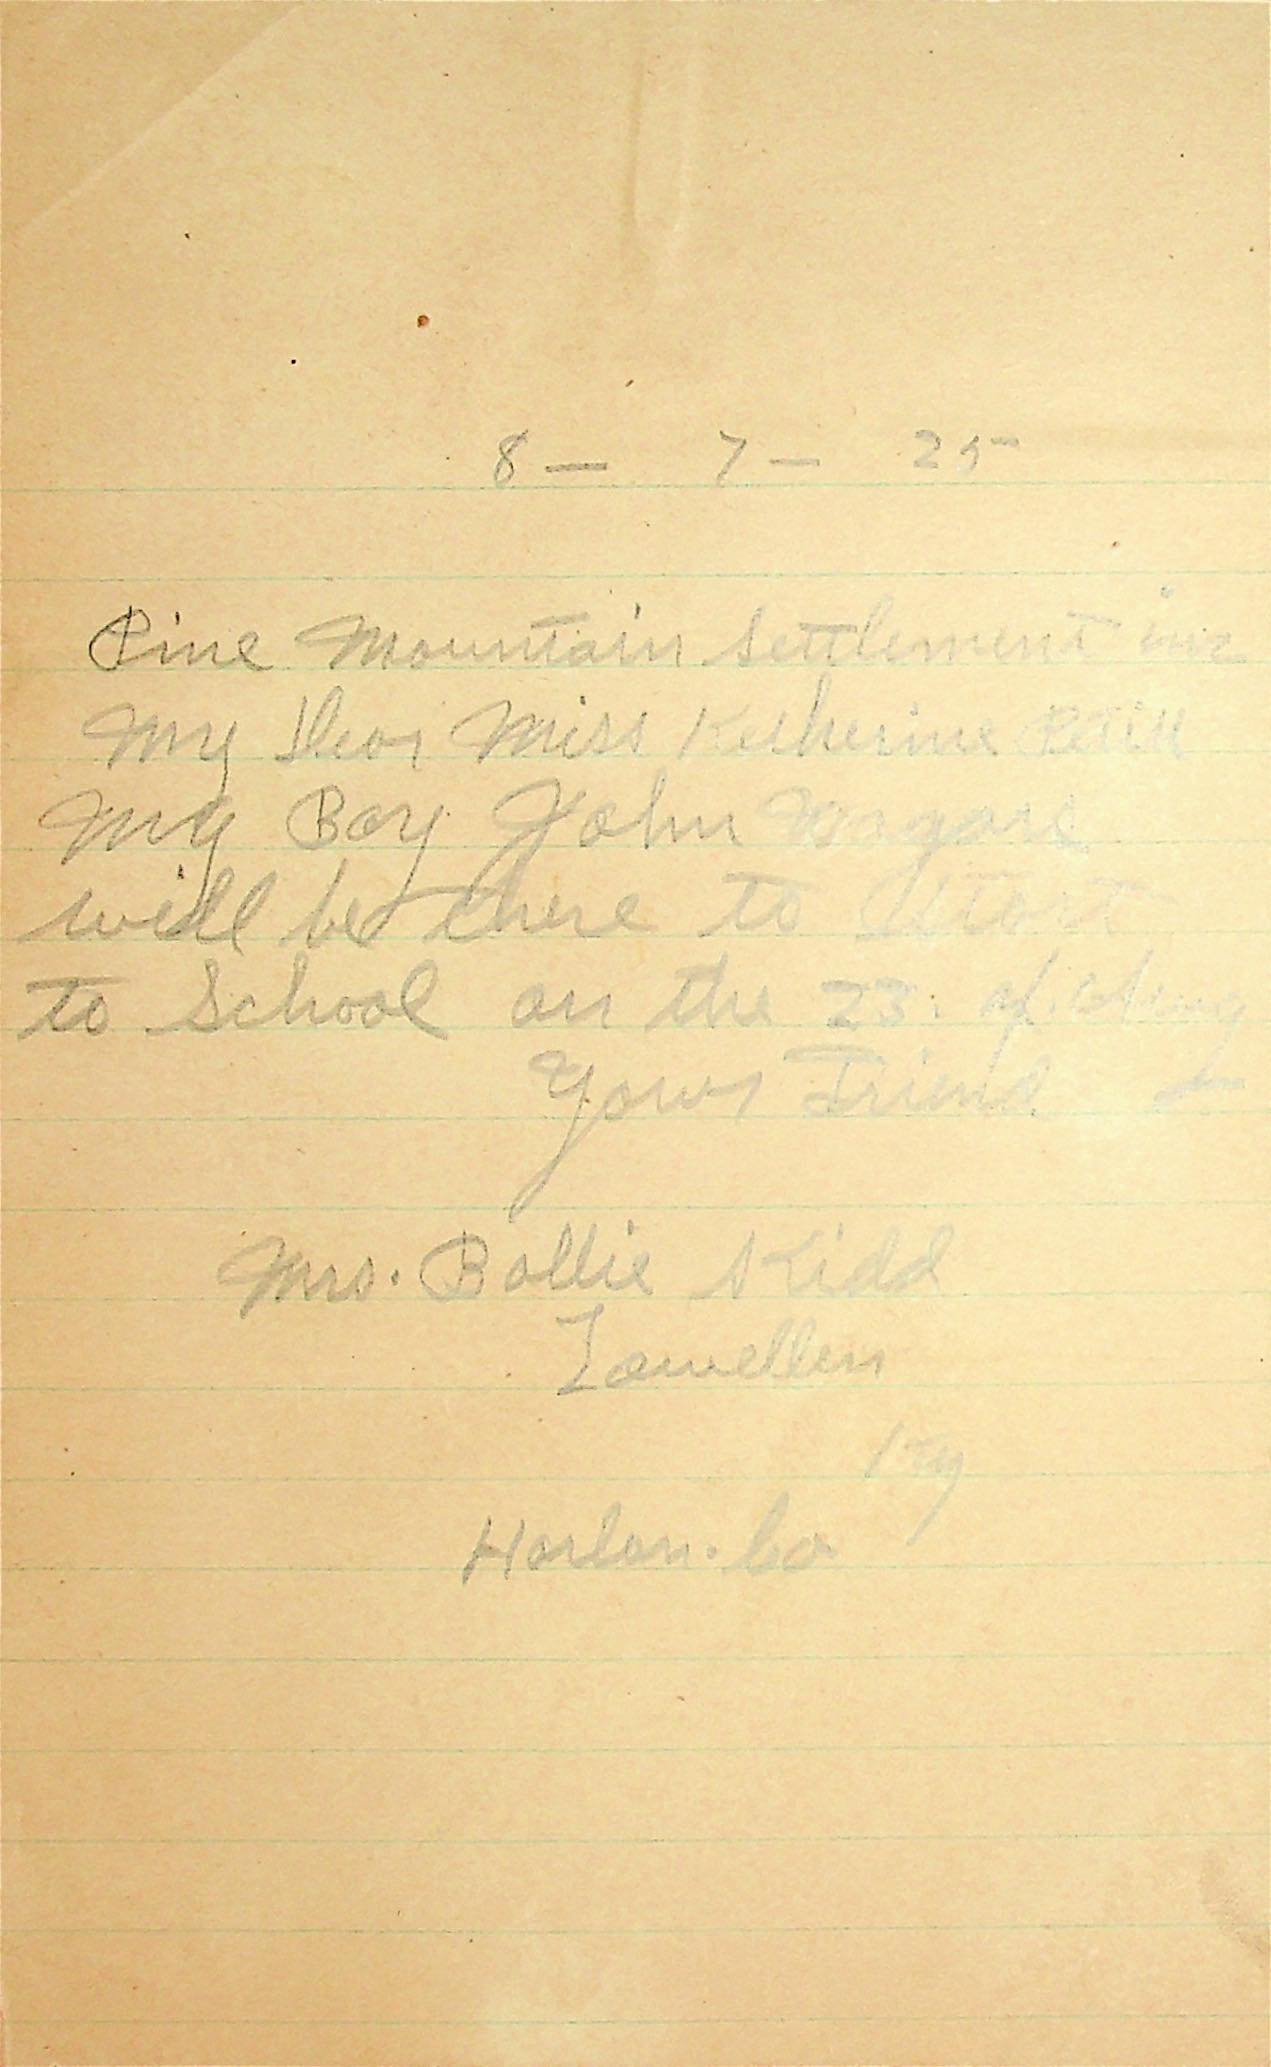 8 — 7 — 25
Pine Mountain Settlement inc
My Dear Miss Katherine Pettit
My Boy John
will be there to Start
to School on the 23. of Aug
Your Friend
Mrs. Bollie Kidd
Lewellen
Ky
Harlan. Co